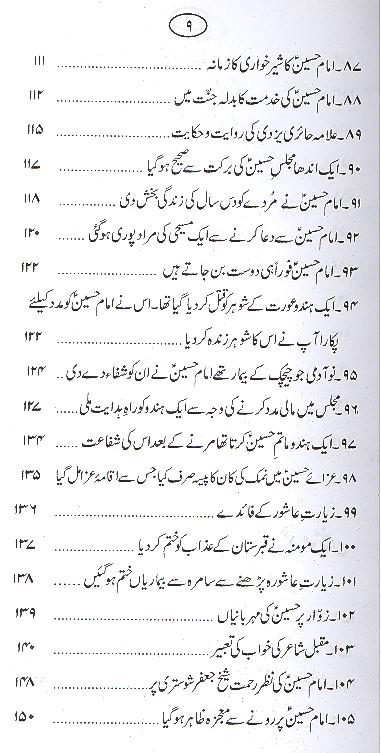 ۹
۸۷۔امام حسینؑ کا شیر خواری کا زمانہ ........................ ۱۱۱
۸۸۔امام حسینؑ کی خدمت کا بدلہ جنّت میں ........................ ۱۱۲
۸۹۔علامہ حائری یزدی کی روایت و حکایت ........................ ۱۱۵
۹۰۔ایک اندھا مجلسِ حسینؑ کی برکت سے صحیح ہو گیا ................ ۱۱۷
۹۱۔امام حسینؑ نے مُردے کو دس سال کی زندگی بخش دی ................ ۱۱۸
۹۲۔امام حسینؑ سے دعا کرنے سے ایک مسیحی کی مراد پوری ہو گئی ....... ۱۲۰
۹۳۔امام حسینؑ فوراً ہی دوست بن جاتے ہیں ........................ ۱۲۲
۹۴۔ایک ہندو عورت کے شوہر کو قتل کر دیا گیا تھا۔اس نے امام حسینؑ کو مدد کیلئے
پکارا آپ نے اس کا شوہر زندہ کر دیا ........................ ۱۲۲
۹۵۔نو آدمی جو چیچک کے بیمار تھے امام حسینؑ نے ان کو شفاء دے دی .. ۱۲۴
۹۶۔مجلس میں مالی مدد کرنے کی وجہ سے ایک ہندو کو راہِ ہدایت ملی ...... ۱۲۷
۹۷۔ایک ہندو ماتمِ حسینؑ کرتا تھا مرنے کے بعد اس کی شفاعت ....... ۱۳۴
۹۸۔عزائے حسینؑ میں نمک کی کان کا پیسہ صرف کیا جس سے اقامۂ عزا مل گیا ۱۳۵
۹۹۔زیارتِ عاشور کے فائدے ........................ ۱۳۶
۱۰۰۔ایک مومنہ نے قبرستان کے عذاب کو ختم کر دیا ................ ۱۳۷
۱۰۱۔زیارتِ عاشورہ پڑھنے سے سامرہ سے بیماریاں ختم ہو گئیں ...... ۱۳۸
۱۰۲۔زوّار پر حسینؑ کی مہربانیاں ........................ ۱۳۹
۱۰۳۔مقبل شاعر کی خواب کی تعبیر ........................ ۱۴۰
۱۰۴۔امام حسینؑ کی نظرِ رحمت شیخ جعفر شوستری پر ................ ۱۴۸
۱۰۵۔امام حسینؑ پر رونے سے معجزہ ظاہر ہو گیا ................ ۱۵۰